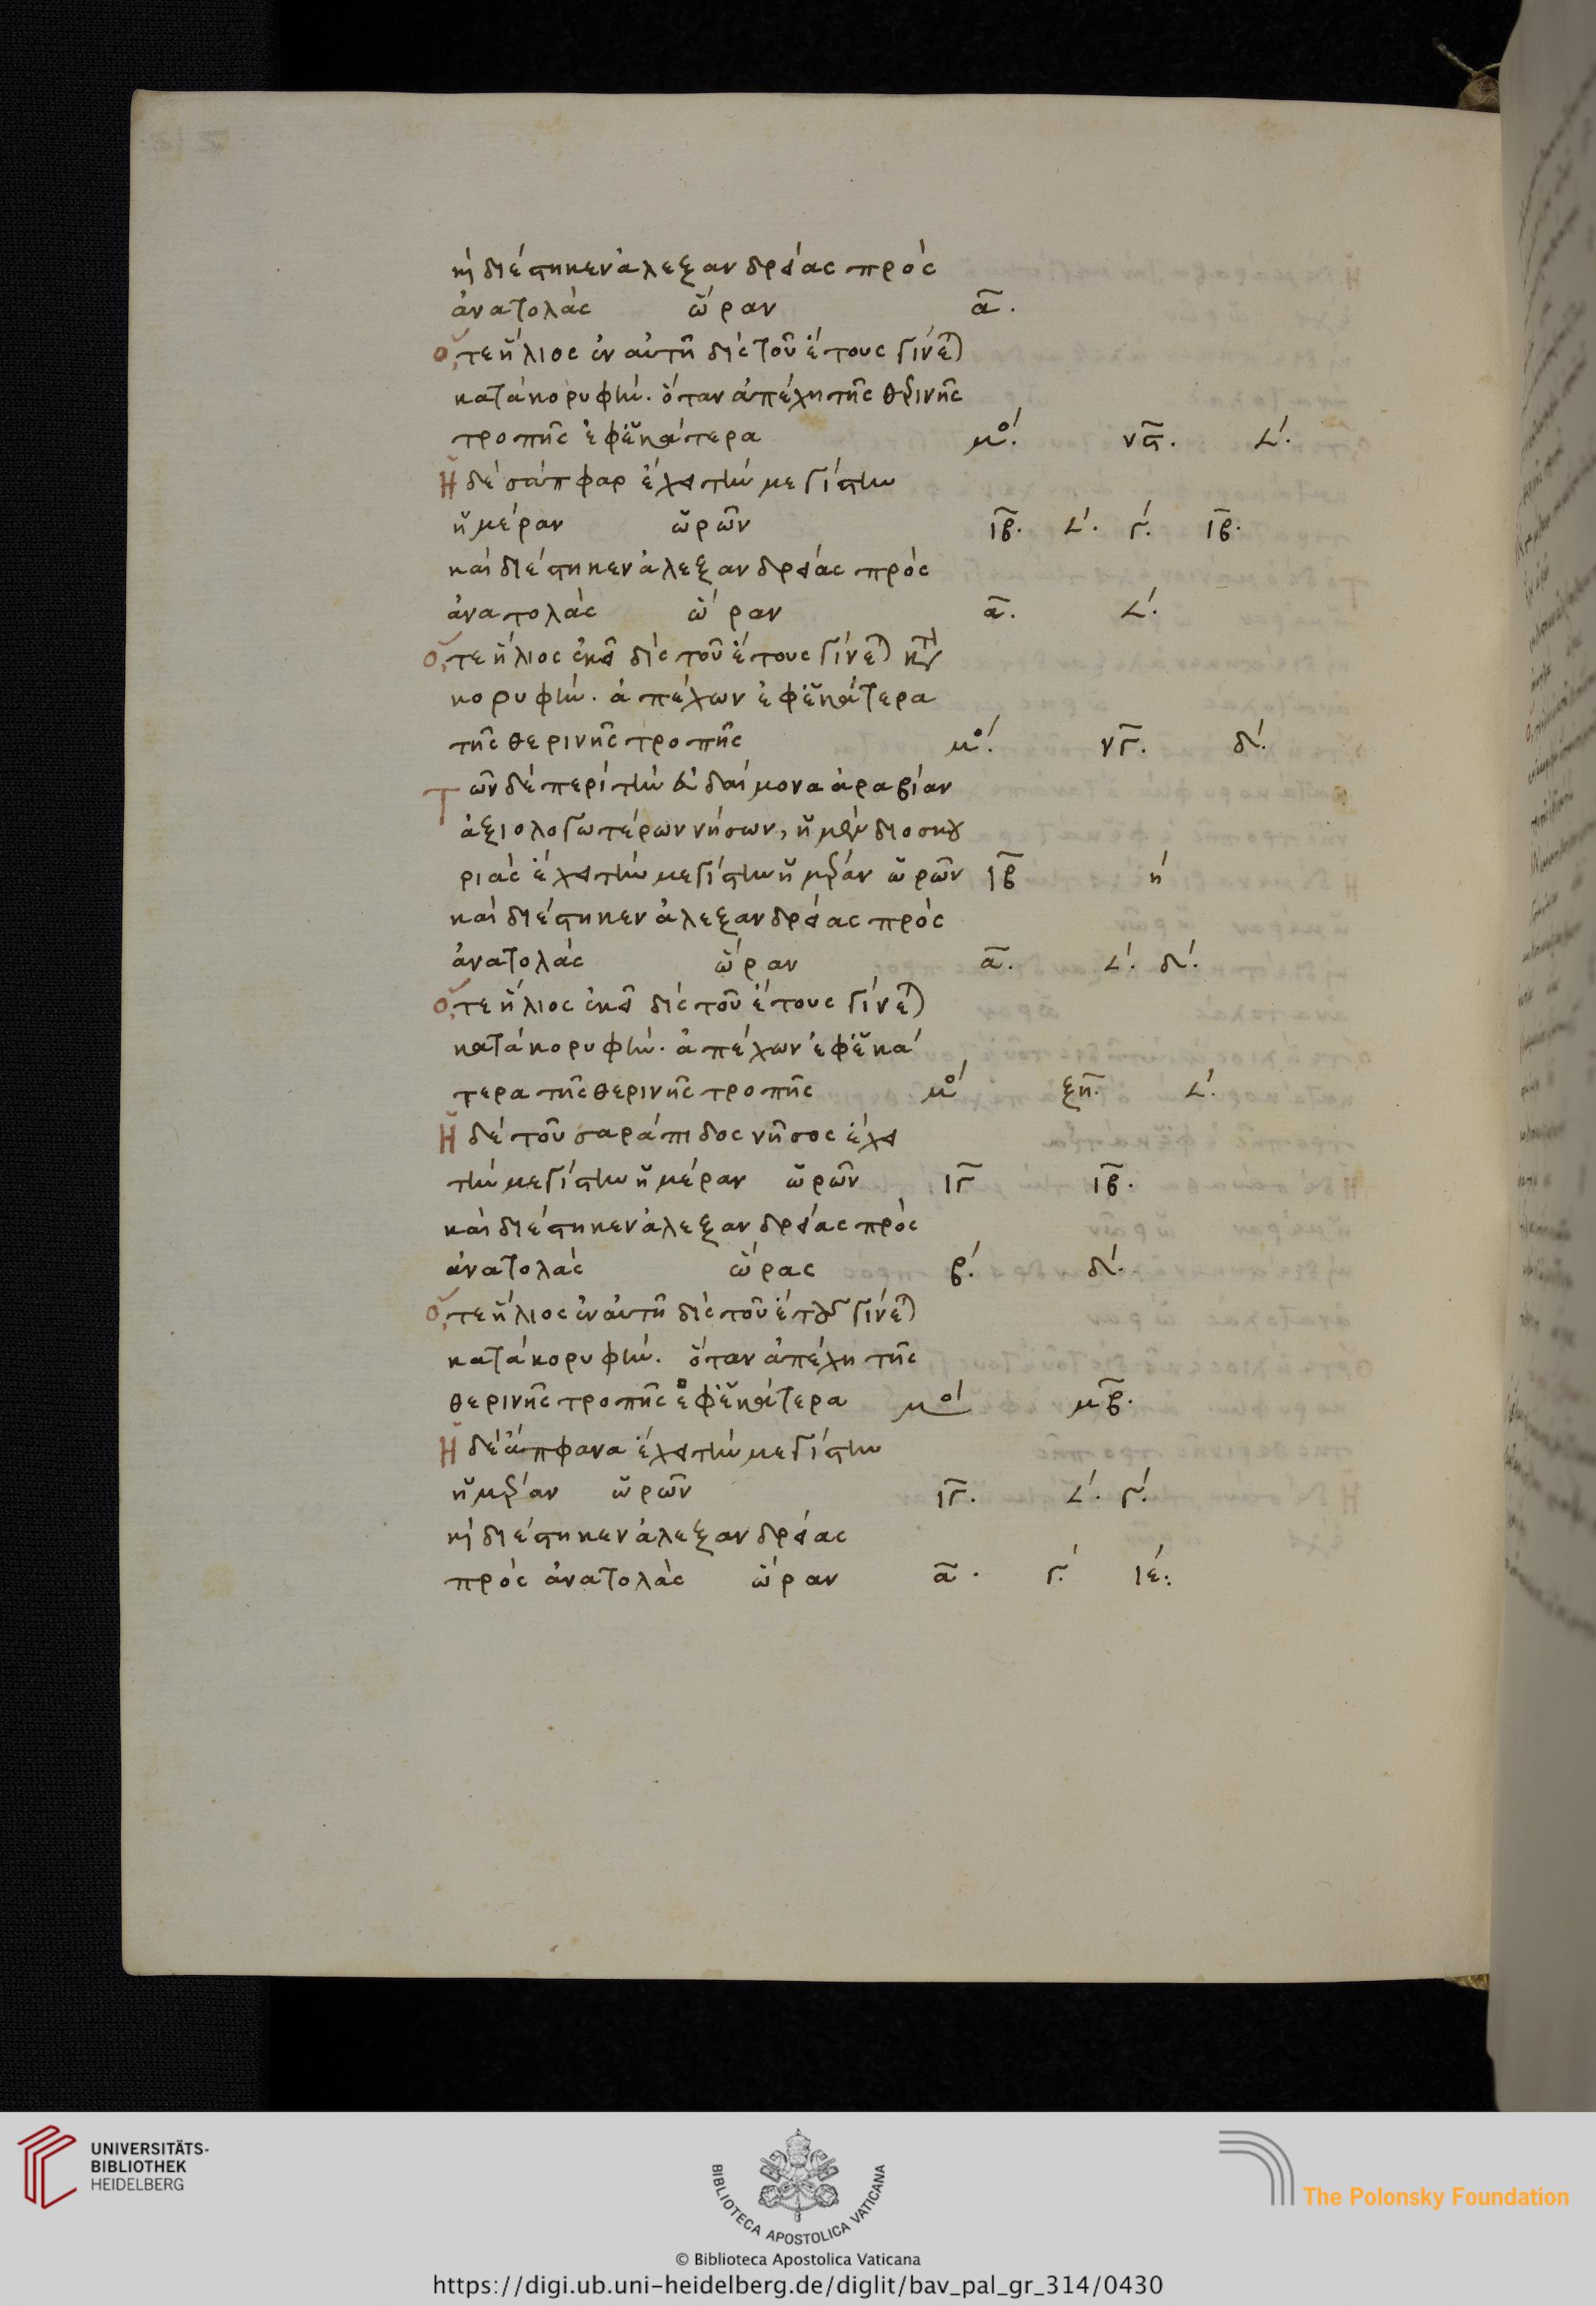 κὴ διέστηκεν ἀλεξανδρείας πρὸς
ἀνατολὰς ὥραν α̅.
Ὅ,τε ἥλιος ἐν αὐτῆ δὶς τοῦ ἔτους γίνε)
κατὰ κορυφήν. ὅταν ἀπέχη τῆς θερινῆς
τροπῆς ἐφ ἑκάτερα μο/. νϛ̅. 𐅵.
Ἡ δὲ σάπφαρ ἔχει τὴν μεγίστην
ἡμέραν ὡρῶν ιβ̅. 𐅵. γ. ιβ̅.
καὶ διέστηκεν ἀλεξανδρείας πρὸς
ἀνατολὰς ὥραν α̅. 𐅵.
Ὅ,τε ἥλιος ἐκεῖ δὶς τοῦ ἔτους γίνε) κτ
κορυφήν. ἀπέχων ἐφ ἑκάτερα
τῆς θερινῆς τροπῆς μο/. νγ̅. δ/.
Τῶν δὲ περὶ τὴν εὐδαίμονα ἀραβίαν
ἀξιολογωτέρων νήσων, ἡ μὲν διοσκου
ριὰς ἔχει τὴν μεγίστην ἡμέραν ὡρῶν ιβ̅ ή
καὶ διέστηκεν ἀλεξανδρείας πρὸς
ἀνατολὰς ὥραν α̅. 𐅵. δ/.
Ὅ,τε ἥλιος ἐκεῖ δὶς τοῦ ἔτους γίνε)
κατὰ κορυφήν. ἀπέχων ἐφ ἑκά
τερα τῆς θερινῆς τροπῆς μο/ ξη̅. 𐅵.
Ἡ δὲ τοῦ σαράπιδος νῆσος ἔχει
τὴν μεγίστην ἡμέραν ὡρῶν ιγ̅ ιβ̅.
καὶ διέστηκεν ἀλεξανδρείας πρὸς
ἀνατολὰς ὥρας β/. δ/.
Ὅ,τε ἥλιος ἐν αὐτῆ δὶς τοῦ ἔτους γίνε)
κατὰ κορυφήν. ὅταν ἀπέχη τῆς
θερινῆς τροπῆς ἐφ ἑκάτερα μο/ μβ̅.
Ἡ δὲ ἄπφανα ἔχει τὴν μεγίστην
ἡμέραν ὡρῶν ιγ̅. 𐅵. γ/.
κὴ διέστηκεν ἀλεξανδρείας
πρὸς ἀνατολὰς ὥραν α̅. γ/. ιέ:
UNIVERSITÄTS-
BIBLIOTHEK
HEIDELBERG
BIBLIOTECA APOSTOLICA VATICANA
The Polonsky Foundation
© Biblioteca Apostolica Vaticana
https://digi.ub.uni-heidelberg.de/diglit/bav_pal_gr_314/0430